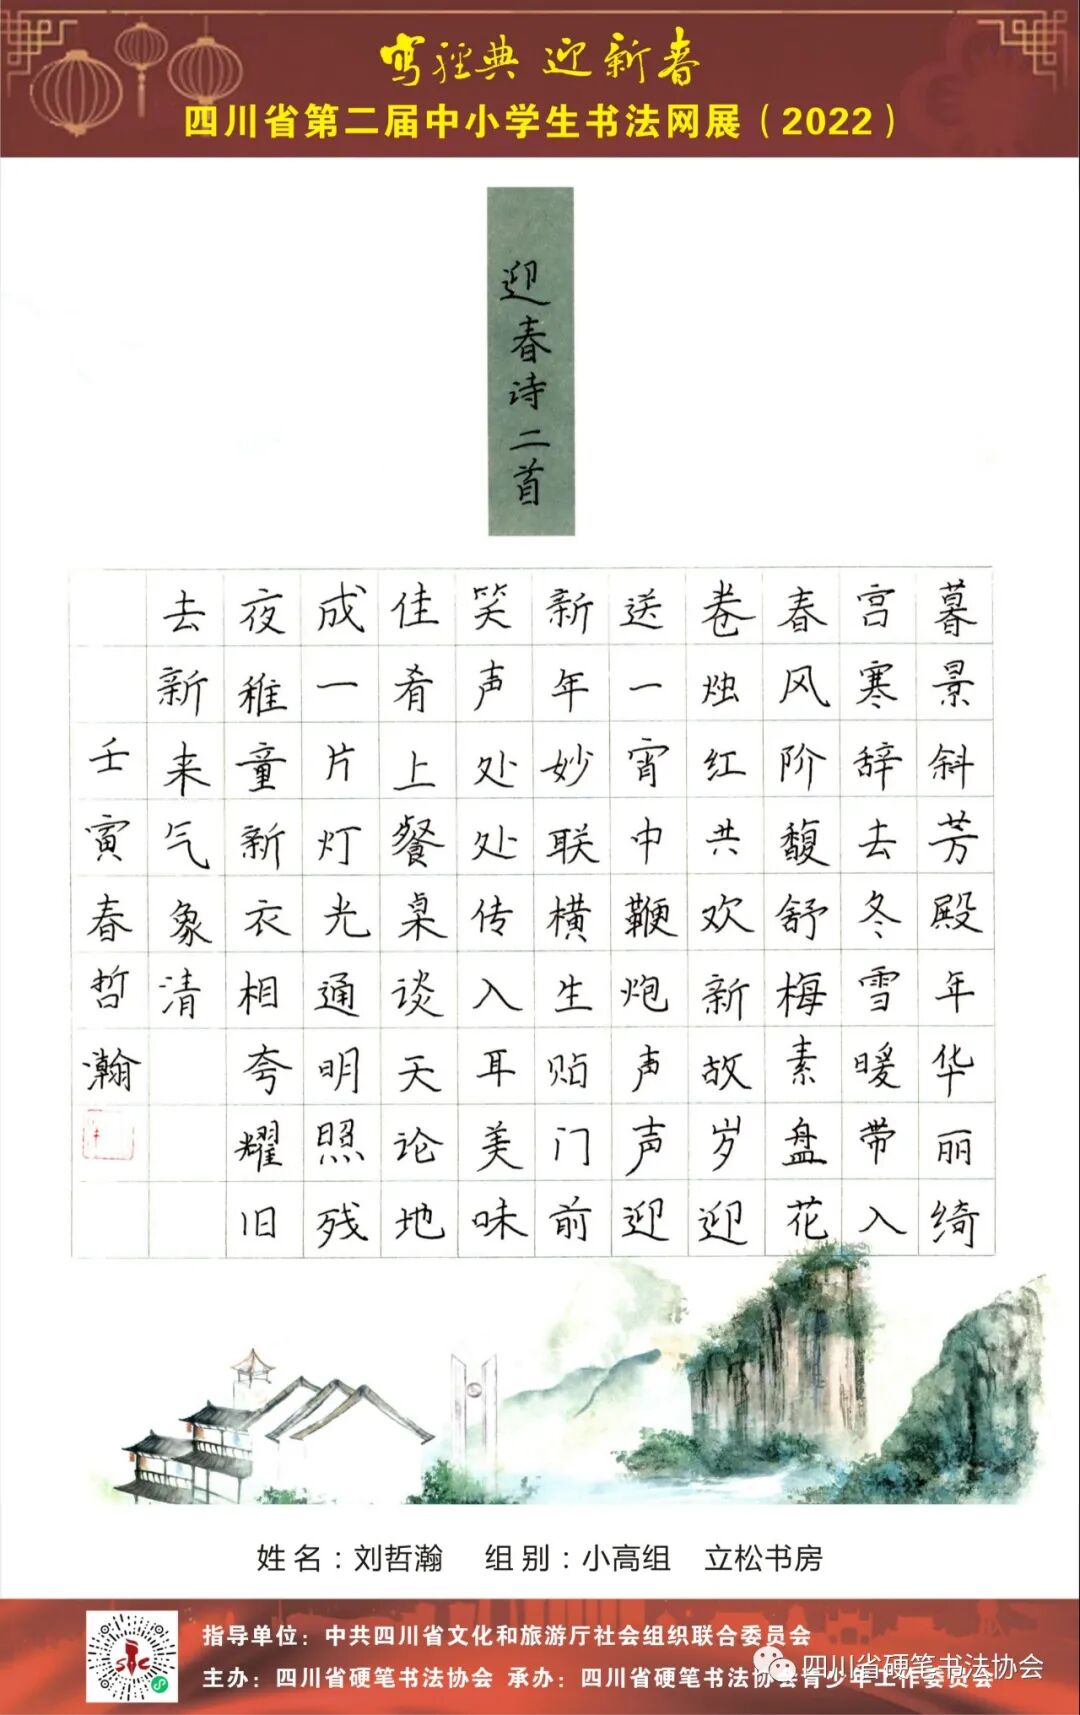 写经典 迎新春
四川省第二届中小学生书法网展（2022）
迎春诗二首
暮景斜芳殿年华丽绮
宫寒辞去冬雪暖带入
春风阶馥舒梅素盘花
卷烛红共欢新故岁迎
送一宵中鞭炮声声迎
新年妙联横生贴门前
笑声处处传入耳美味
佳肴上餐桌谈天论地
成一片灯光通明照残
夜稚童新衣相夸耀旧
去新来气象清
壬寅春哲瀚
姓名：刘哲瀚 组别：小高组 立松书房
指导单位：中共四川省文化和旅游厅社会组织联合委员会
主办：四川省硬笔书法协会 承办：四川省硬笔书法协会青少年工作委员会
四川省硬笔书法协会